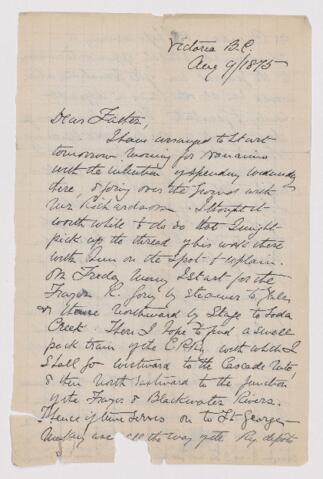 Victoria B.C.
Aug 9/1875
Dear Father,
I have arranged to start
tomorrow morning for Nanaimo
with the intention of spending Wednesday
there, & going over the ground with
Mr Richardson. I thought it
worth while to do so that I might
pick up the thread of his work there
with him on the spot to explain.
On Friday morning I start for the
Frazer R. going by steamer to Yale
& thence northward by Stage to Soda
Creek. There I hope to find a small
pack train of the C.P.Ry with which I
shall go westward to the Cascade Mts
& then North Eastward to the junction
of the Frazer & Blackwater Rivers.
Thence if time serves on to Ft George
making use all the way of the Ry depots